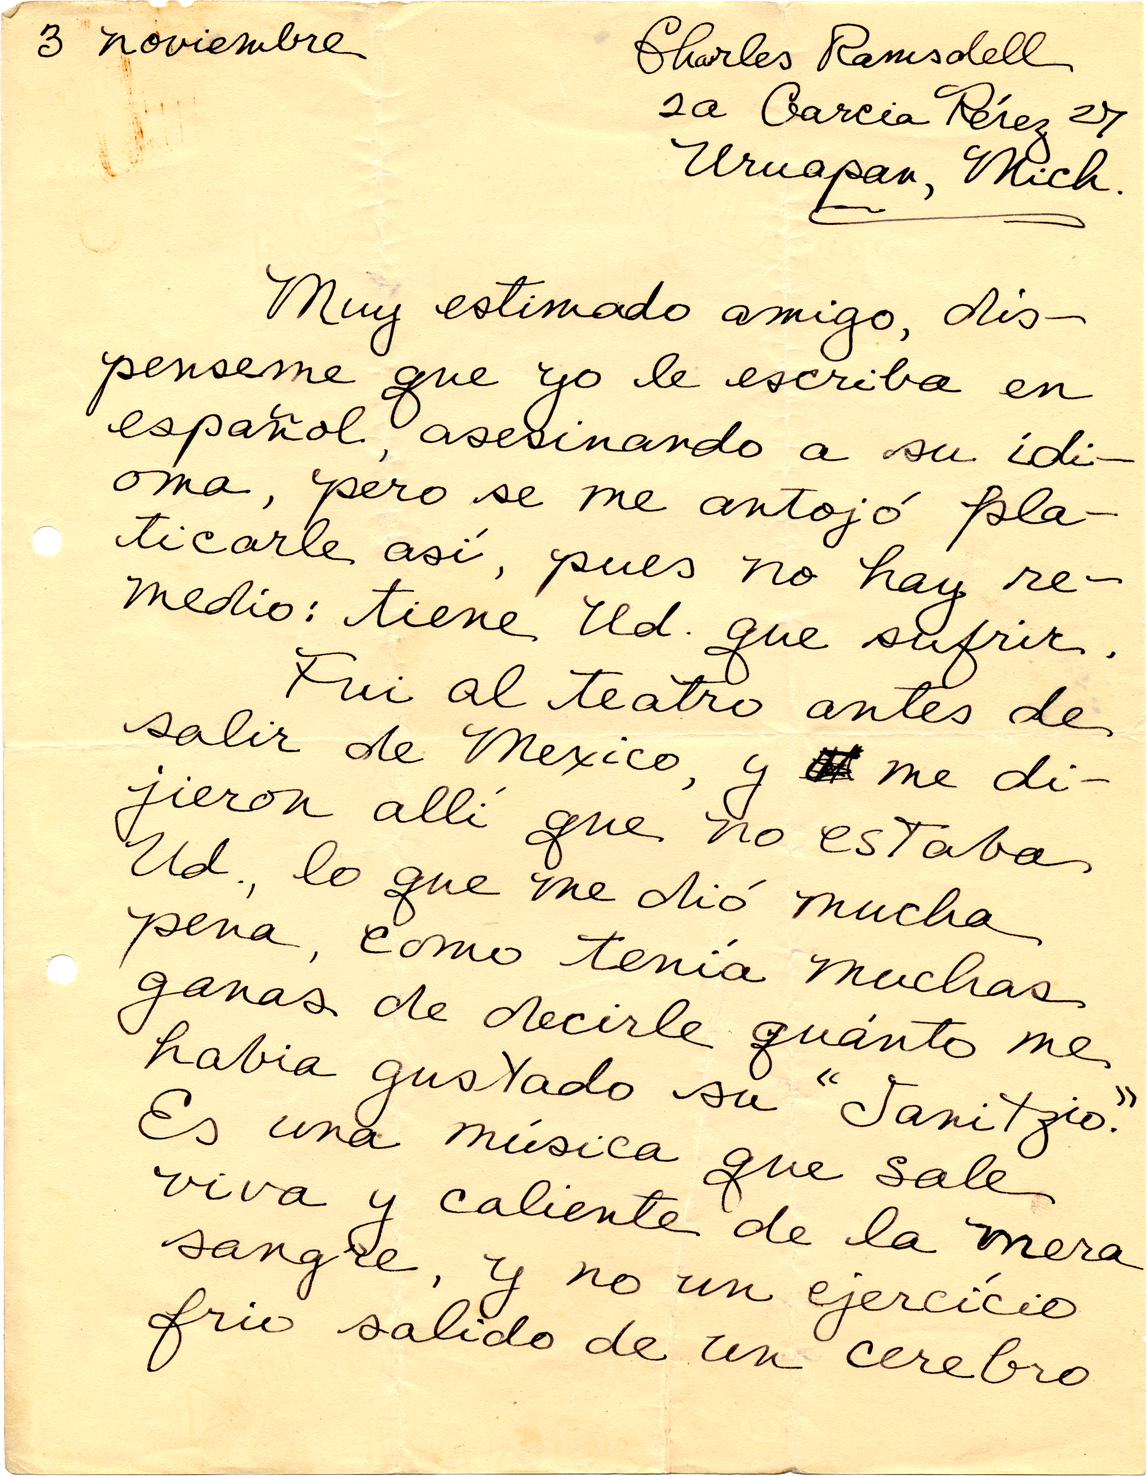 3 noviembre
Charles Ramsdell
2a Garcia Pérez 27
Uruapan, Mich.
Muy estimado amigo, dis-
penseme que yo le escriba en
español, asesinando a su idi-
oma, pero se me antojó pla-
ticarle así, pues no hay re-
medio: tiene Ud. que sufrir.
Fui al teatro antes de
salir de Mexico, y me di-
jieron allí que no estaba
Ud., lo que me dió mucha
pena, como tenía muchas
ganas de decirle quánto me
habia gustado su "Janitzio."
Es una música que sale
viva y caliente de la mera
sangre, y no un ejercício
frio salido de un cerebro